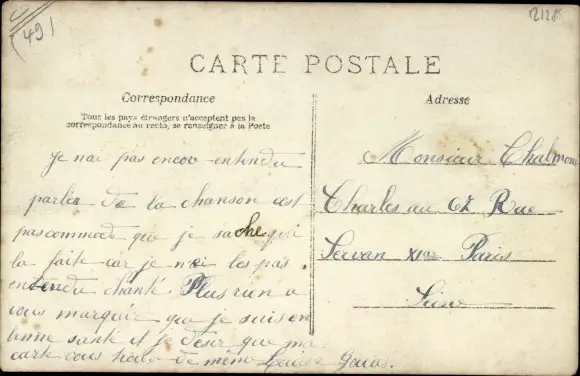 (491
2128
CARTE POSTALE
Correspondance
Tous les pays étrangers n'acceptent pas la
correspondance au recto, se renseigner à la Poste
Adresse
Je nai pas encor entendu
parler de la chanson cest
pas commode que je sache qui
la faite car je n'ei les pas
entendu chanté. Plus rien a
vous marquér que je suis en
bonne santé et je desir que ma
carte vous de même Louise
Monsieur Chalmon
Charles au 67 Rue
Servan XIe Paris